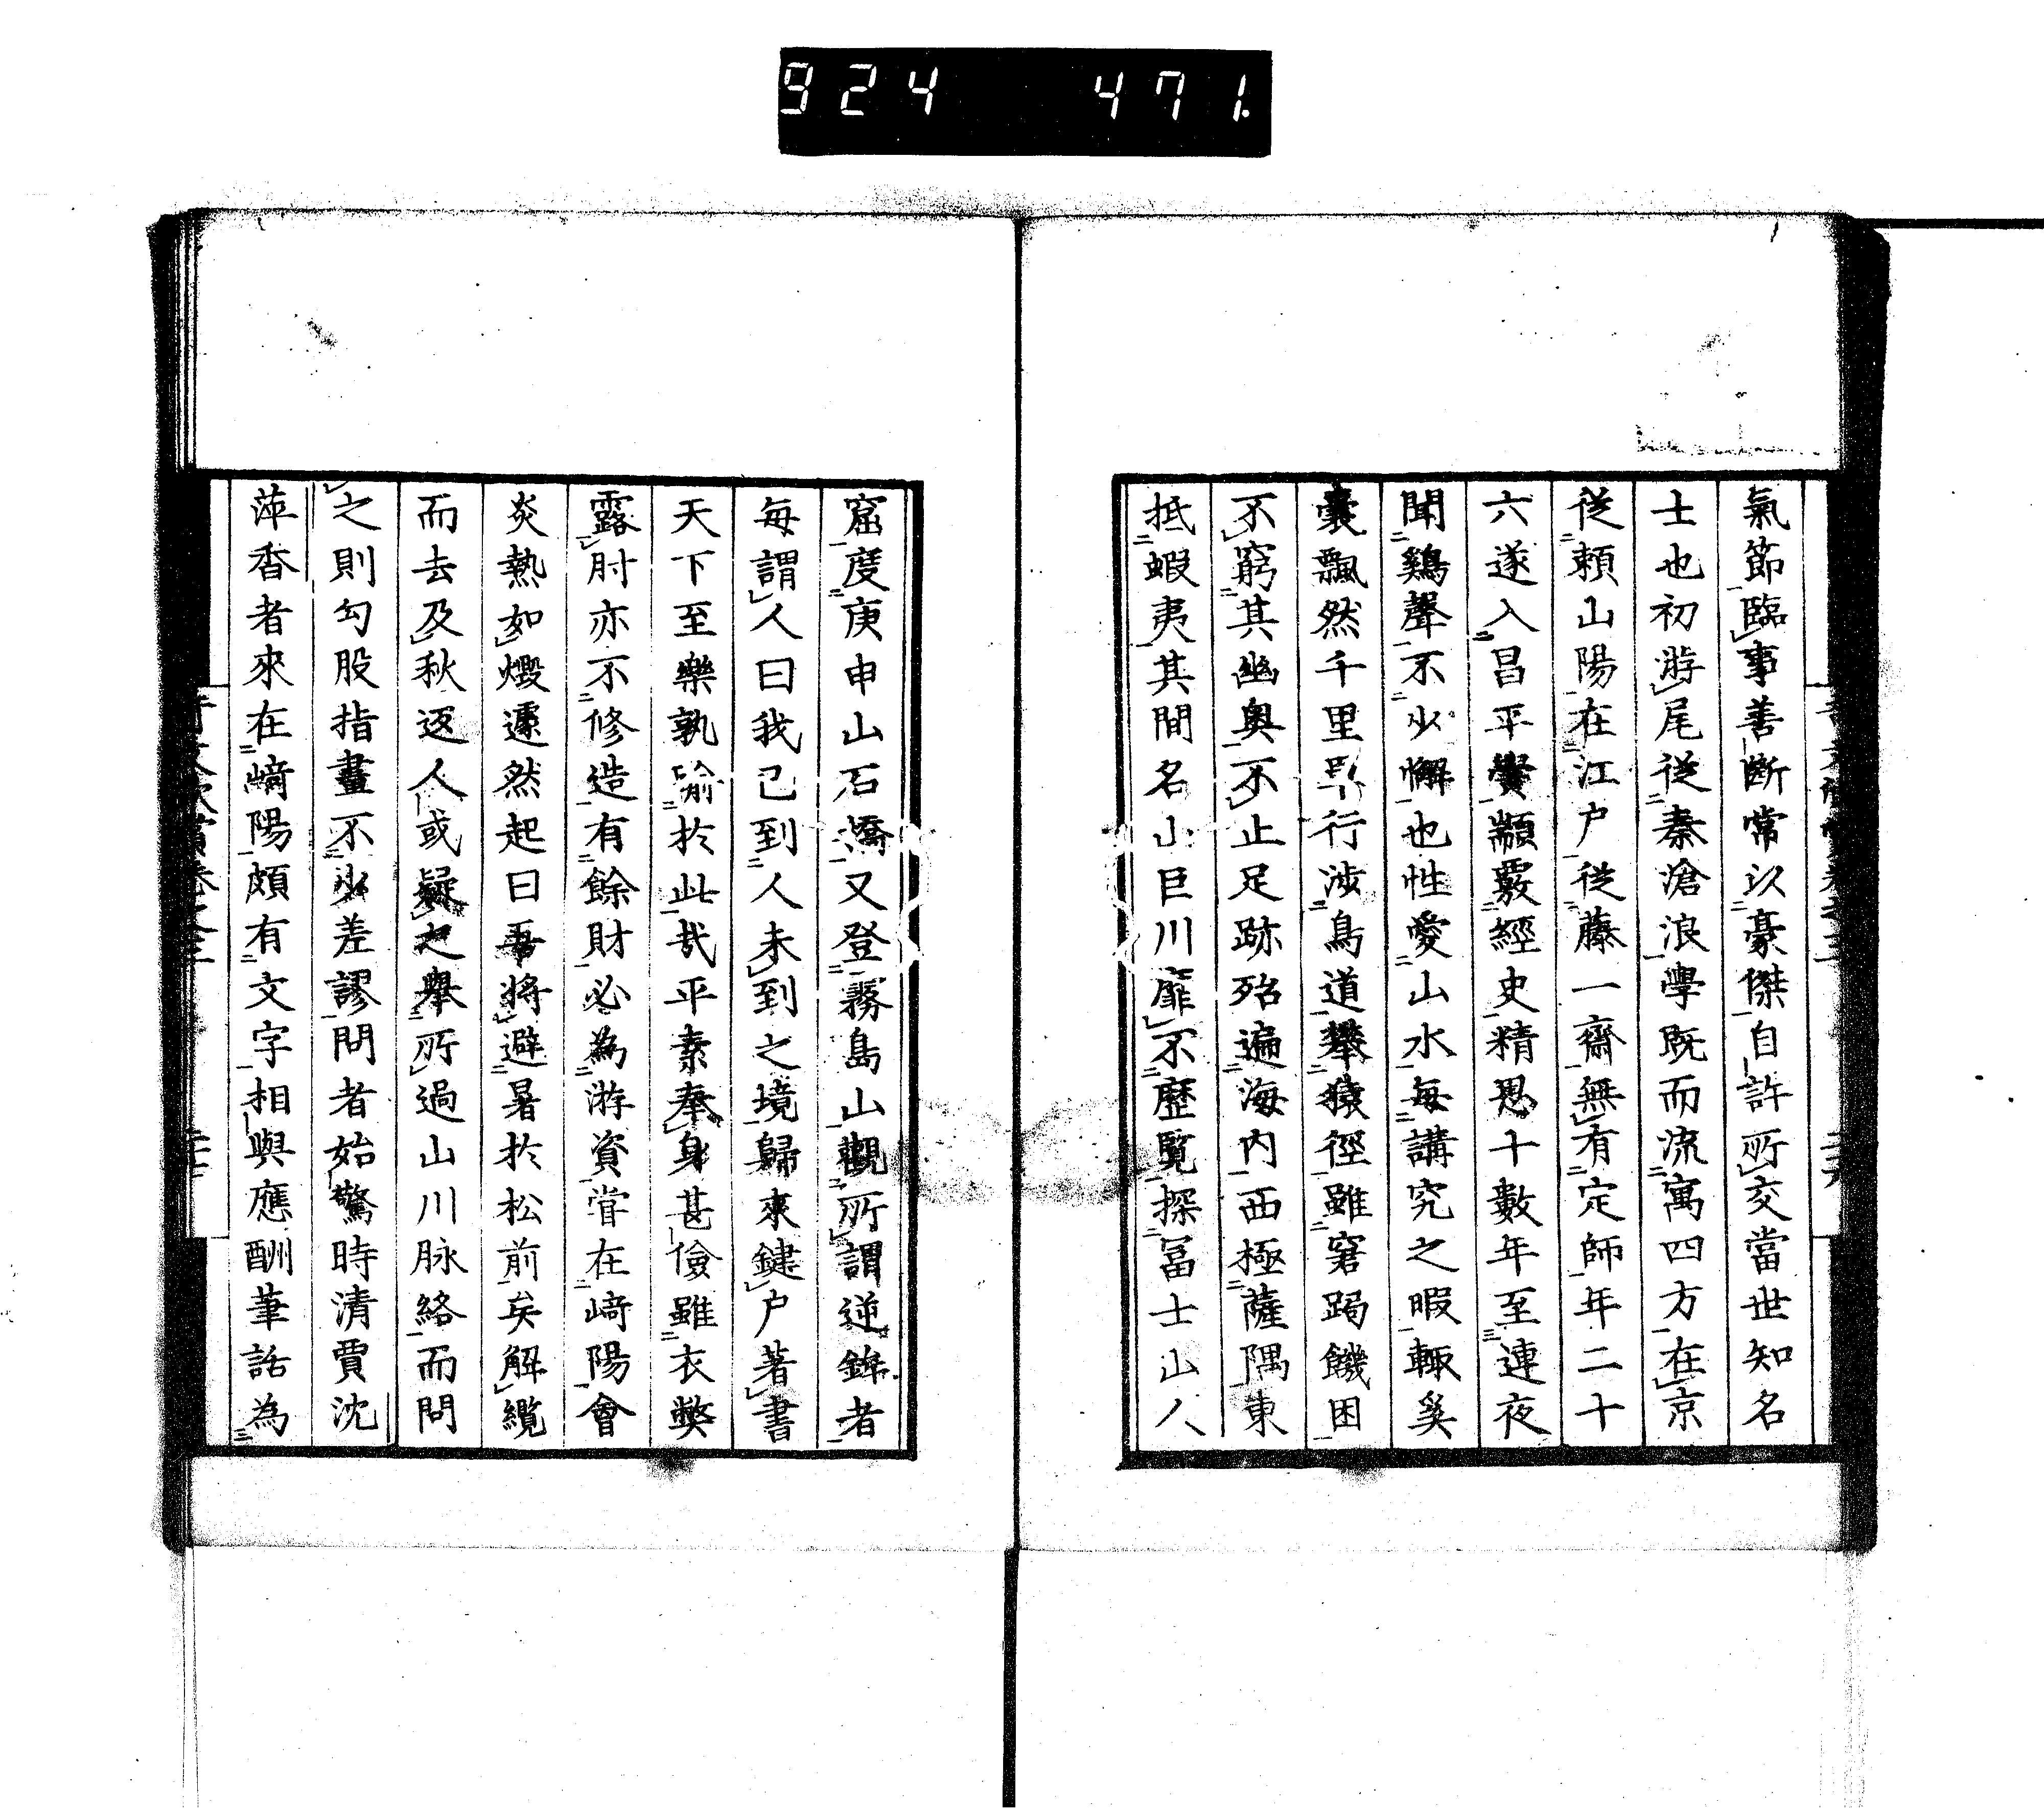 924 471.
氣節臨事善斷常以豪傑自許所交當世知名
士也初游尾從秦滄浪學既而流寓四方在京
從頼山陽在江戸從藤一齋無有定師年二十
六遂入昌平黌顓覈經史精思十數年至連夜
聞鷄聲不少懈也性愛山水每講究之暇輙奚
囊飄然千里行涉鳥道攀猿徑雖窘跼饑困
不窮其幽奥不止足跡殆遍海内西極薩隅東
抵蝦夷其間名山巨川靡不歷覧探冨士山人
窟度庚申山石橋又登霧島山觀所謂逆鉾者
每謂人曰我已到人未到之境歸來鍵户著書
天下至樂孰喩於此哉平素奉身甚儉雖衣獘
露肘亦不修造有餘財必為游資甞在﨑陽會
炎熱如燬遽然起曰吾將避暑於松前矣解纜
而去及秋返人或疑之舉所過山川脉絡而問
之則勾股指畫不少差謬問者始驚時清賈沈
萍香者來在﨑陽頗有文字相與應酬筆話為